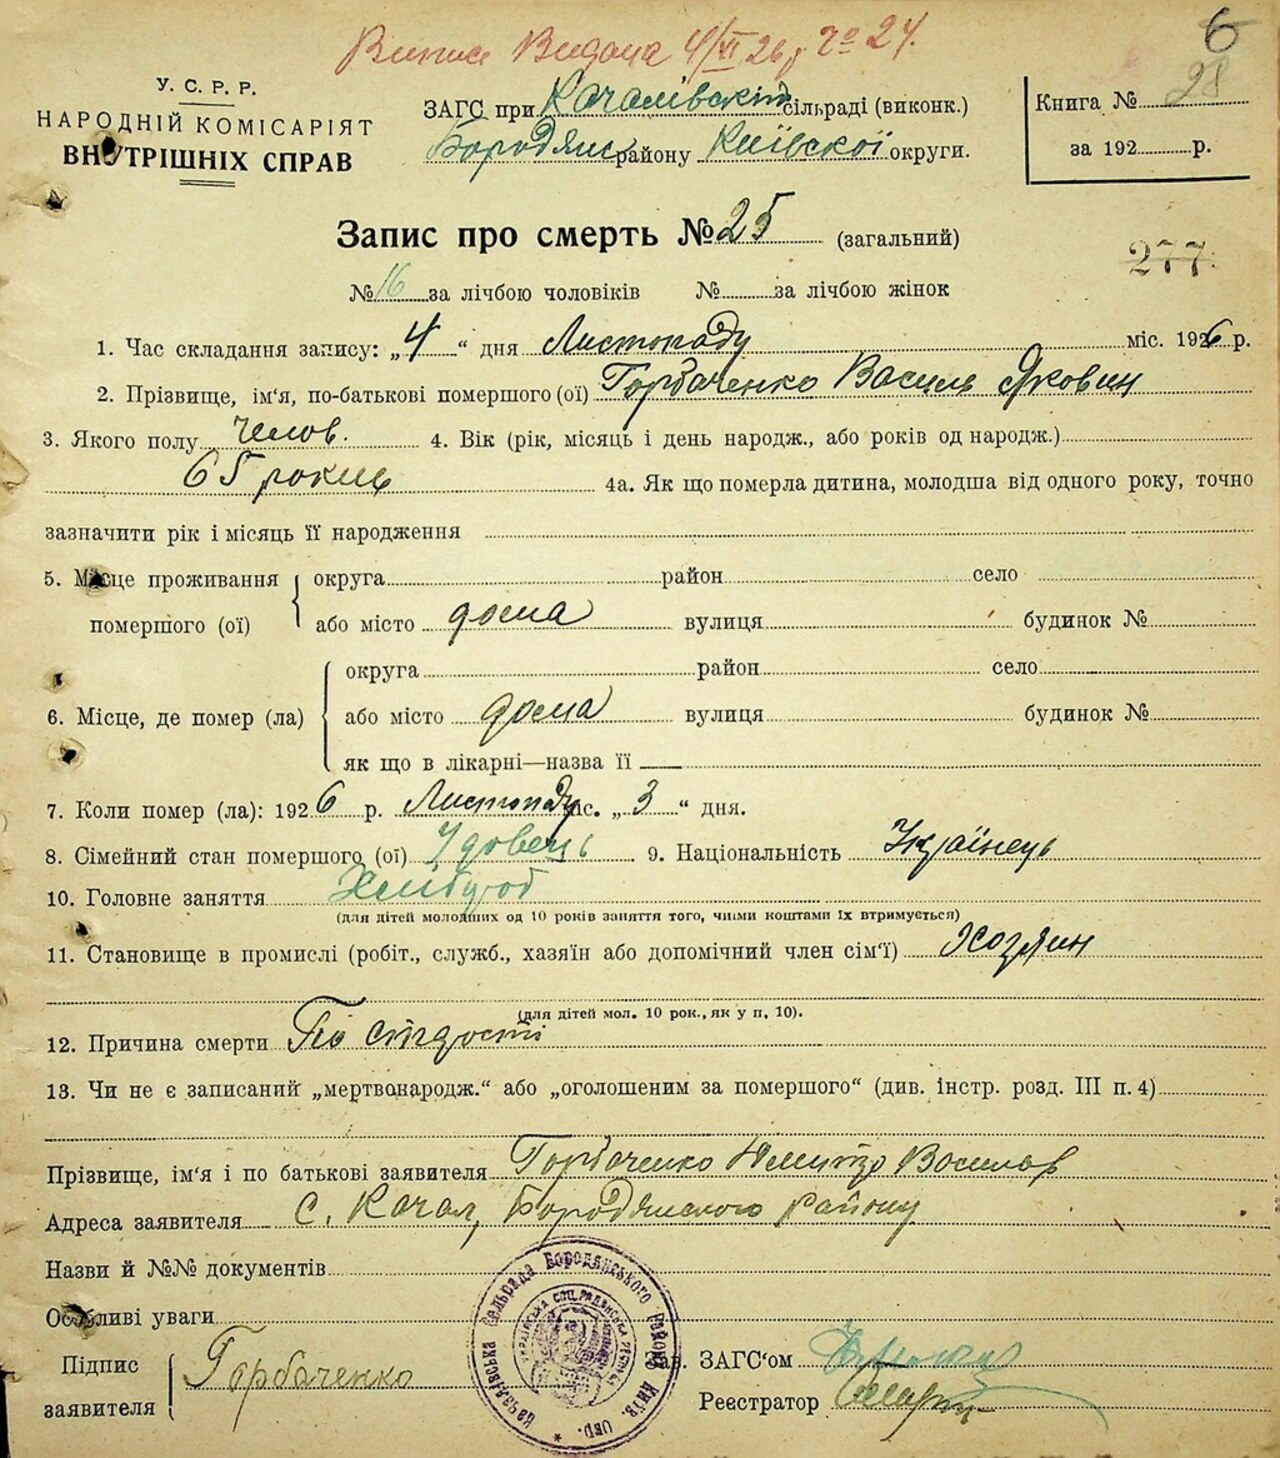 Випись Видана 4/XI 26 р. № 24.
6
28
У. С. Р. Р.
НАРОДНІЙ КОМІСАРІЯТ
ВНУТРІШНІХ СПРАВ
ЗАГС при Качалівській сільраді (виконк.)
Бородянс району Київської округи.
Книга №
за 192 р.
Запис про смерть № 25 (загальний)
277
№ 16 за лічбою чоловіків № за лічбою жінок
1. Час складання запису: „4“ дня Листопаду міс. 1926 р.
2. Прізвище, ім'я, по-батькові помершого (ої) Горбаченко Василь Якович
3. Якого полу Челов. 4. Вік (рік, місяць і день народж., або років од народж.)
65 років 4а. Як що померла дитина, молодша від одного року, точно
зазначити рік і місяць її народження
5. Місце проживання помершого (ої) округа район село
або місто дома вулиця будинок №
6. Місце, де помер (ла) округа район село
або місто дома вулиця будинок №
як що в лікарні—назва її
7. Коли помер (ла): 1926 р. Листопаду міс. „3“ дня.
8. Сімейний стан помершого (ої) Удовець 9. Національність Українець
10. Головне заняття Хлібороб
(для дітей молодших од 10 років заняття того, чиїми коштами їх втримується)
11. Становище в промислі (робіт., служб., хазяїн або допомічний член сім'ї) Хозяин
(для дітей мол. 10 рок., як у п. 10).
12. Причина смерти По старості
13. Чи не є записаний „мертвонародж.“ або „оголошеним за помершого“ (див. інстр. розд. III п. 4)
Прізвище, ім'я і по батькові заявителя Горбаченко Дмитро Васильов
Адреса заявителя С. Качал, Бородянского Району
Назви й №№ документів
Особливі уваги
Підпис заявителя Горбаченко
Зав. ЗАГС'ом
Реєстратор
Качалівська Сельрада Бородянського Району Київ. Окр.